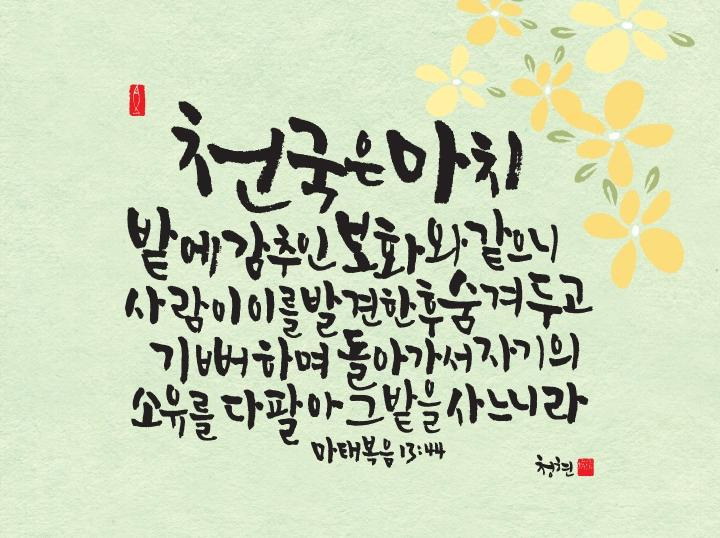 천국은 마치
밭에 감추인 보화와 같으니
사람이 이를 발견한 후 숨겨 두고
기뻐하며 돌아가서 자기의
소유를 다 팔아 그 밭을 사느니라
마태복음 13:44
청현